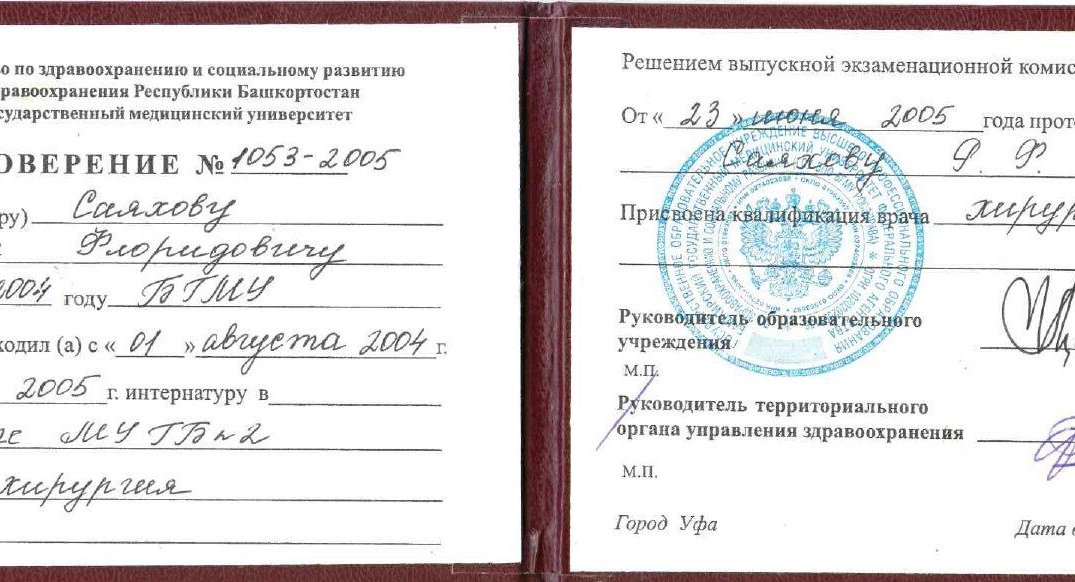 о по здравоохранению и социальному развитию
равоохранения Республики Башкортостан
сударственный медицинский университет
ОВЕРЕНИЕ № 1053-2005
ру) Саяхову
Флоридовичу
2004 году БГМУ
ходил (а) с « 01 » августа 2004 г.
2005 г. интернатуру в
МУ ГБ №2
хирургия
Решением выпускной экзаменационной комис
От « 23 » июня 2005 года прото
Саяхову Р. Ф.
Присвоена квалификация врача хирур
Руководитель образовательного
учреждения
М.П.
Руководитель территориального
органа управления здравоохранения
М.П.
Город Уфа
Дата в